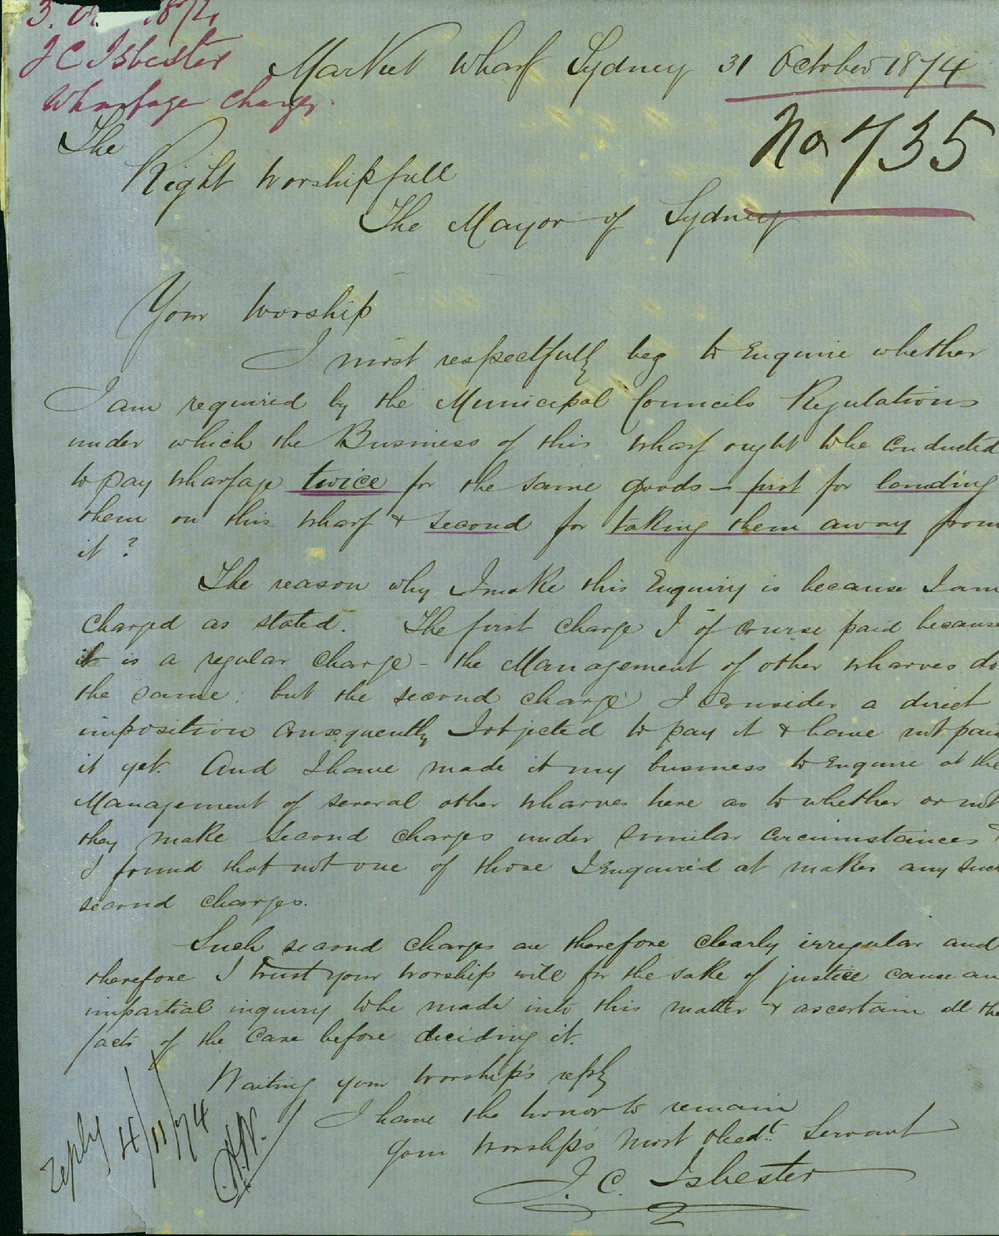 1874
J C Isbester
Wharfage Charges.
Market Wharf Sydney 31 October 1874
No 735
The
Right Worshipfull
The Mayor of Sydney
Your Worship
I most respectfully beg to Enquire whether
I am required by the Municipal Councils Regulations
under which the Business of this Wharf ought to be conducted
to pay wharfage twice for the same goods – first for landing
them on this Wharf & second for taking them away from
it?
The reason why I make this Enquiry is because I am
charged as stated. The first charge I of course paid because
it is a regular charge – the Management of other wharves do
the same: but the second charge I consider a direct
imposition consequently I objected to pay it & have not paid
it yet. And I have made it my business to Enquire at the
Management of several other wharves here as to whether or not
they make second charges under similar circumstances &
I found that not one of those I Enquired at makes any such
second charges.
Such second charges are therefore clearly irregular and
therefore I trust your Worship will for the sake of justice cause an
impartial inquiry to be made into this matter & ascertain all the
facts of the case before deciding it.
Waiting your Worship's reply
I have the honor to remain
Your Worship's Most Obedt. Servant
J. C. Isbester
reply 4/11/74